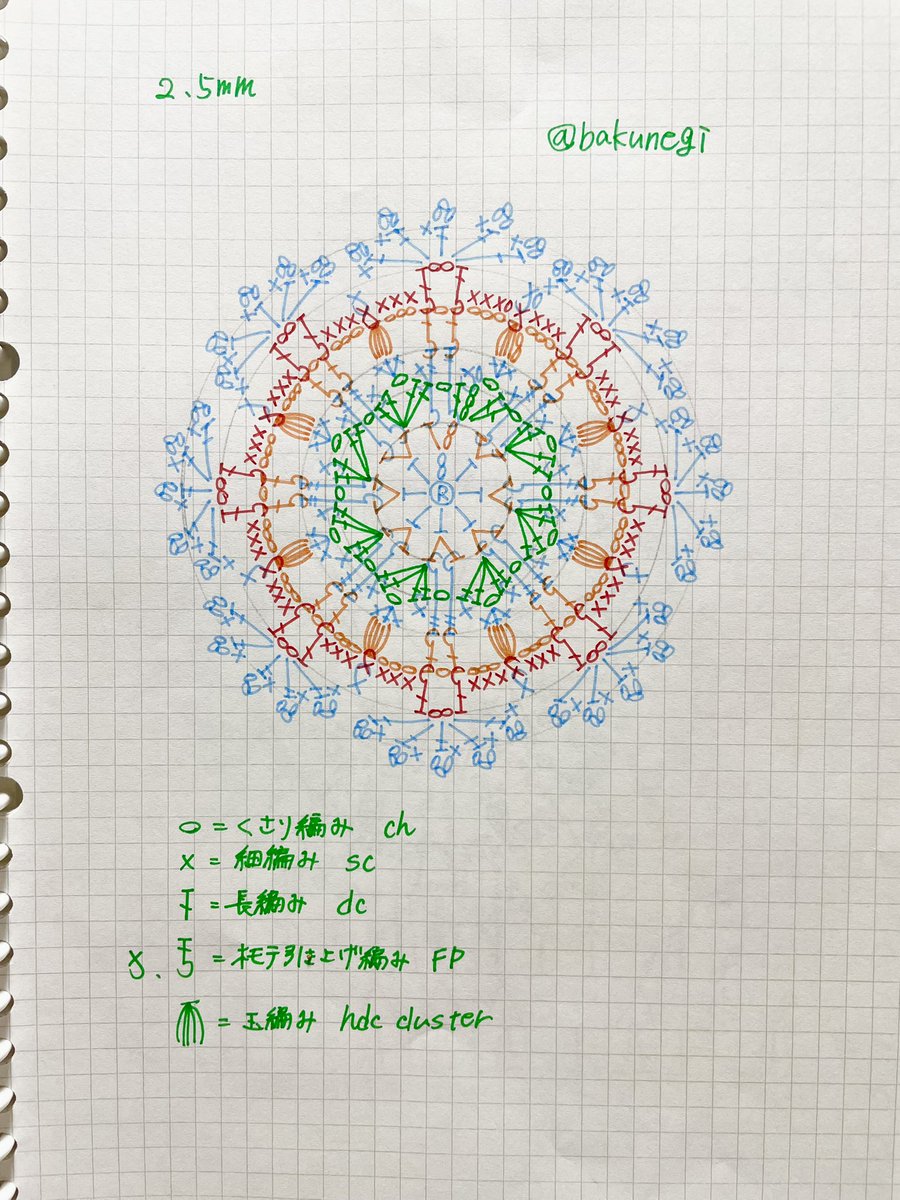 2.5mm
@bakunegi
R
= くさり編み ch
= 細編み sc
= 長編み dc
= オモテ引き上げ編み FP
= 玉編み hdc cluster